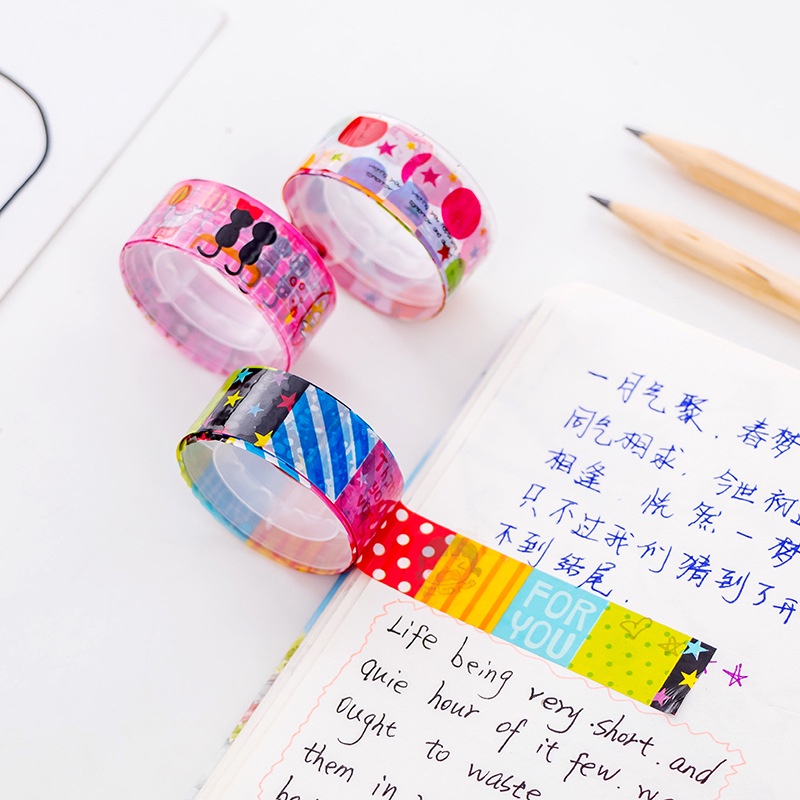 一日气聚．春梦
同气相求．今世初
相逢 恍然一梦
只不过我们猜到了开
不到结尾．
FOR
YOU
Life being very short. and
quie hour of it few. we
ought to waste
them in